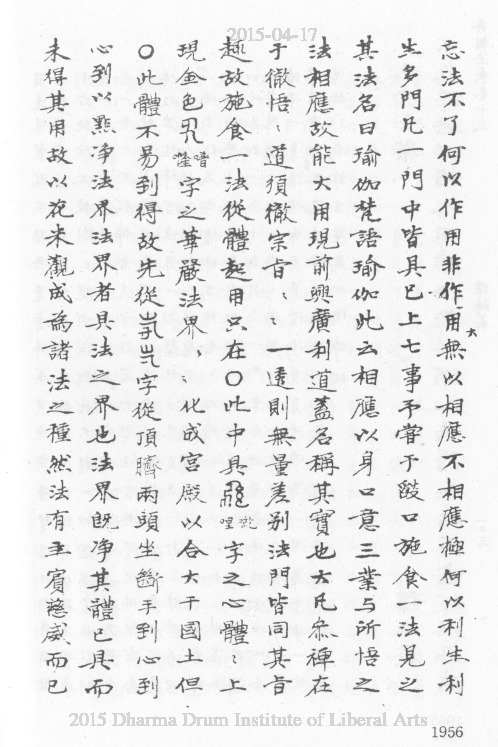 2015-04-17
忘法不了何以作用非作大用無以相應不相應極何以利生利
生多門凡一門中皆具已上七事予嘗于燄口施食一法見之
其法名曰瑜伽梵語瑜伽此云相應以身口意三業与所悟之
法相應故能大用現前興廣利道蓋名稱其實也大凡叅禅在
于徹悟〻道須徹宗旨〻〻一透則無量差别法門皆同其旨
趣故施食一法從體起用只在〇此中具 字之心體〻
現金色 字之華嚴法界一一化成宮殿以合大千國土但
〇此體不易到得故先從 字從頂臍兩頭坐斷手到心到
心到以㸃淨法界法界者具法之界也法界既淨其體已具而
未得其用故以花米觀成為諸法之種然法有主賓蔭威而已
2015 Dharma Drum Institute of Liberal Arts
1956